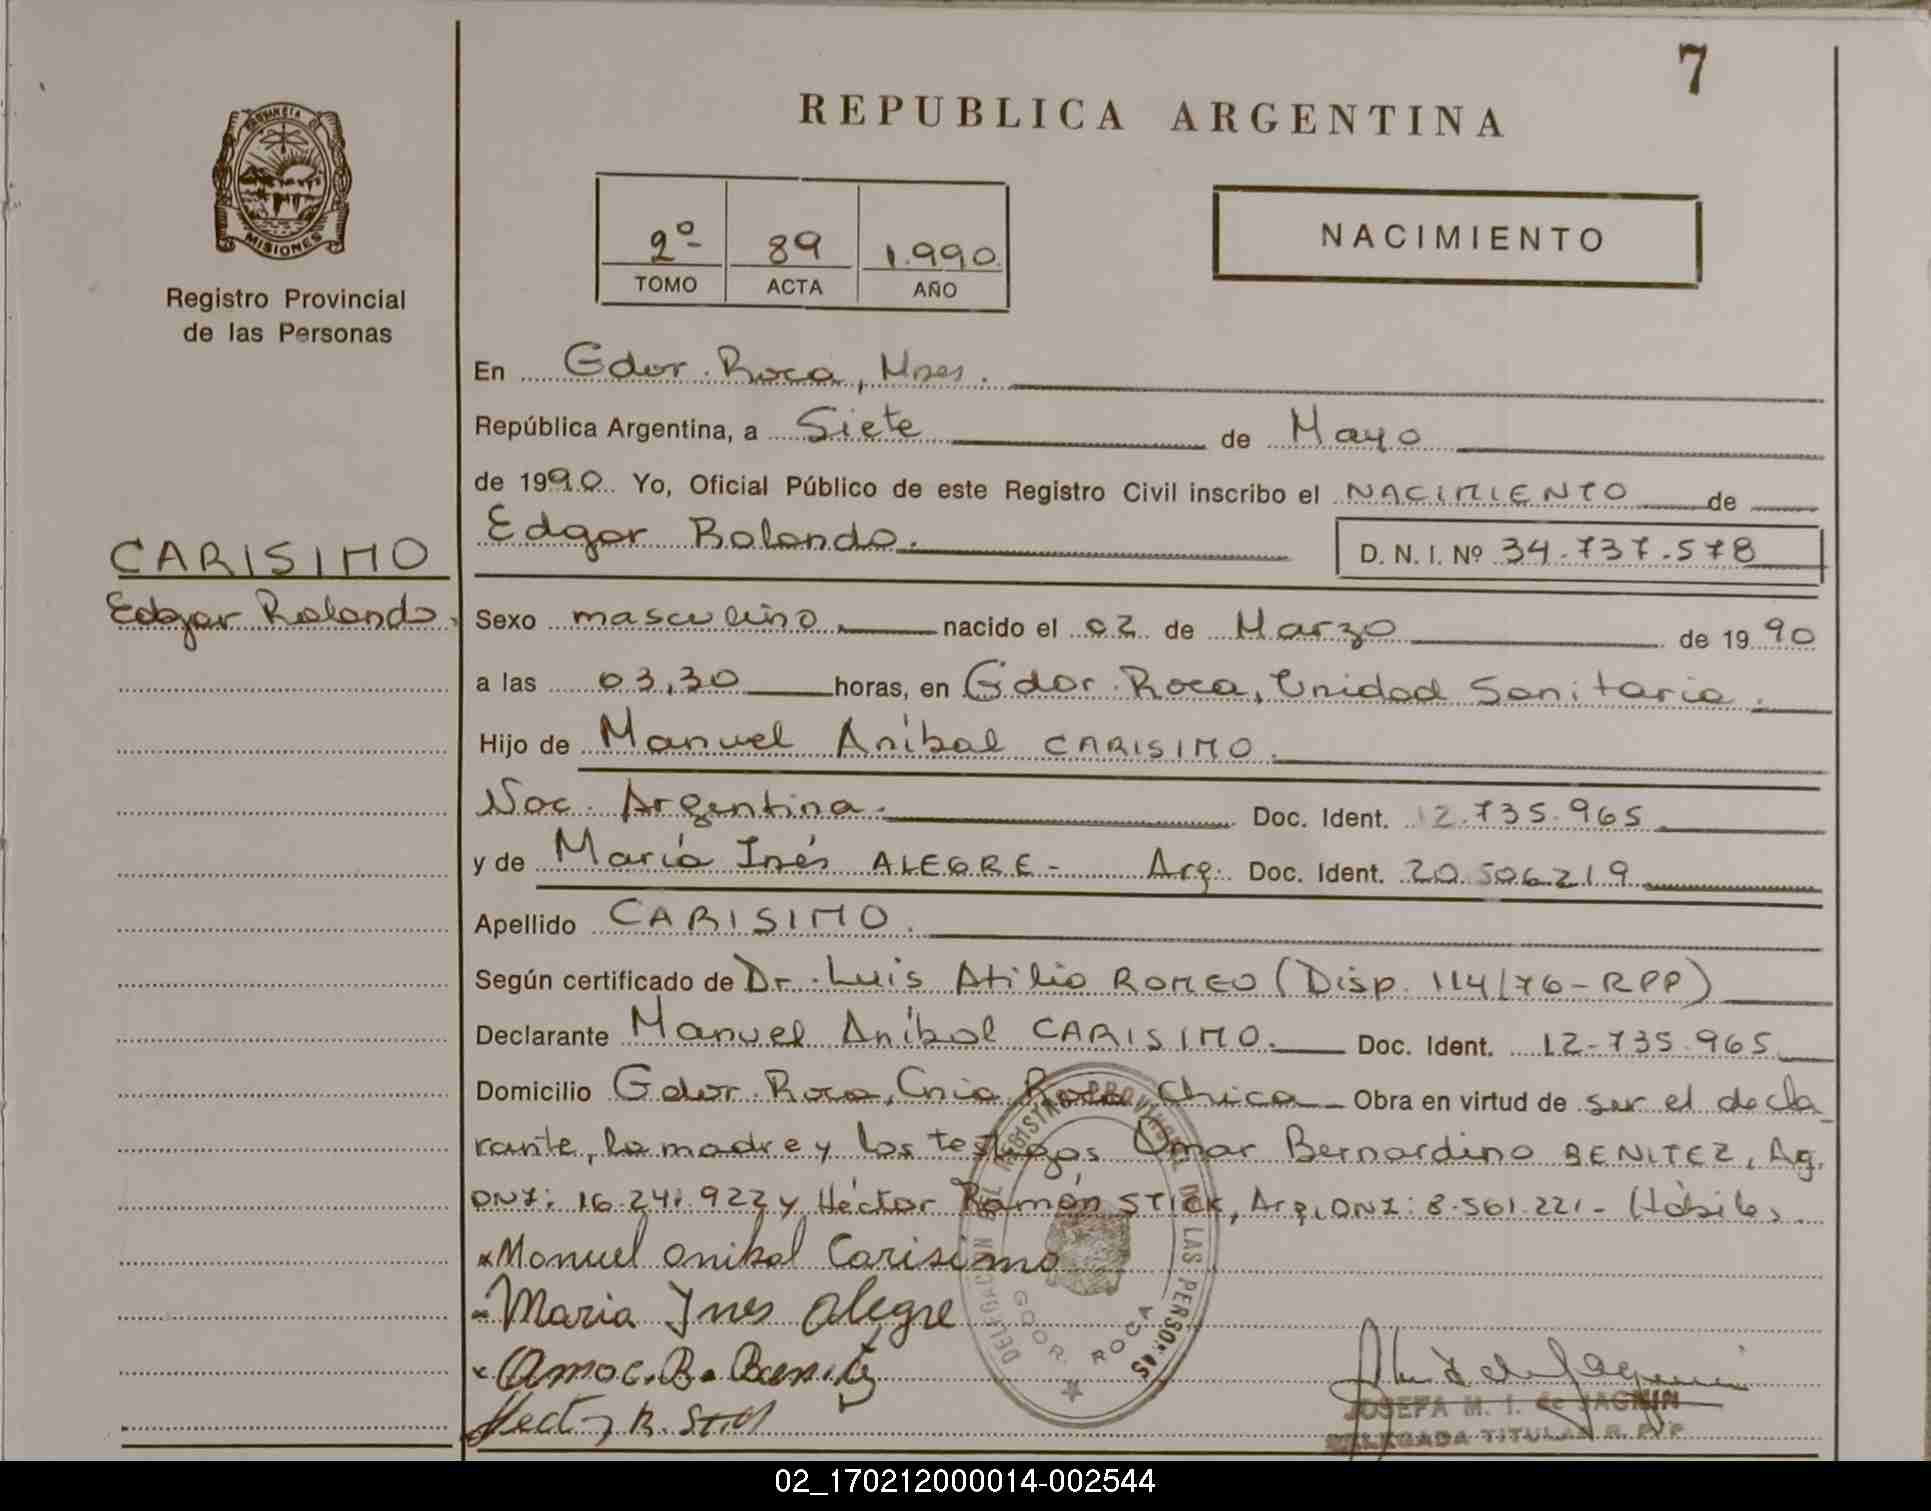 7
REPUBLICA ARGENTINA
PROVINCIA DE
MISIONES
Registro Provincial
de las Personas
2º 89 1.990
TOMO ACTA AÑO
NACIMIENTO
En Gdor. Roca, Mnes.
República Argentina, a Siete de Mayo
de 1990. Yo, Oficial Público de este Registro Civil inscribo el NACIMIENTO de
Edgar Rolando.
D. N. I. Nº 34.737.578
CARISIMO
Edgar Rolando.
Sexo masculino, nacido el 02 de Marzo de 1990
a las 03,30 horas, en Gdor. Roca, Unidad Sanitaria.
Hijo de Manuel Aníbal CARISIMO.
Nac. Argentina. Doc. Ident. 12.735.965
y de María Inés ALEGRE- Arg. Doc. Ident. 20.506.219
Apellido CARISIMO.
Según certificado de Dr. Luis Atilio ROMEO (Disp. 114/76-RPP)
Declarante Manuel Aníbal CARISIMO. Doc. Ident. 12-735.965
Domicilio Gdor. Roca, Cnia Roca Chica Obra en virtud de ser el decla
rante, la madre y los testigos Omar Bernardino BENITEZ, Ag.
DNI: 16.241.922 y Héctor Ramón STICK, Arg. DNI: 8.561.221- Hábiles.
Manuel Anibal Carisimo
Maria Ines Alegre
Omar B. Benitez
Hector R. Stick
DELEGACION DEL REGISTRO PROVINCIAL DE LAS PERSONAS
GDOR. ROCA
JOSEFA M. I. de JAGMIN
DELEGADA TITULAR R. P. P.
02_170212000014-002544